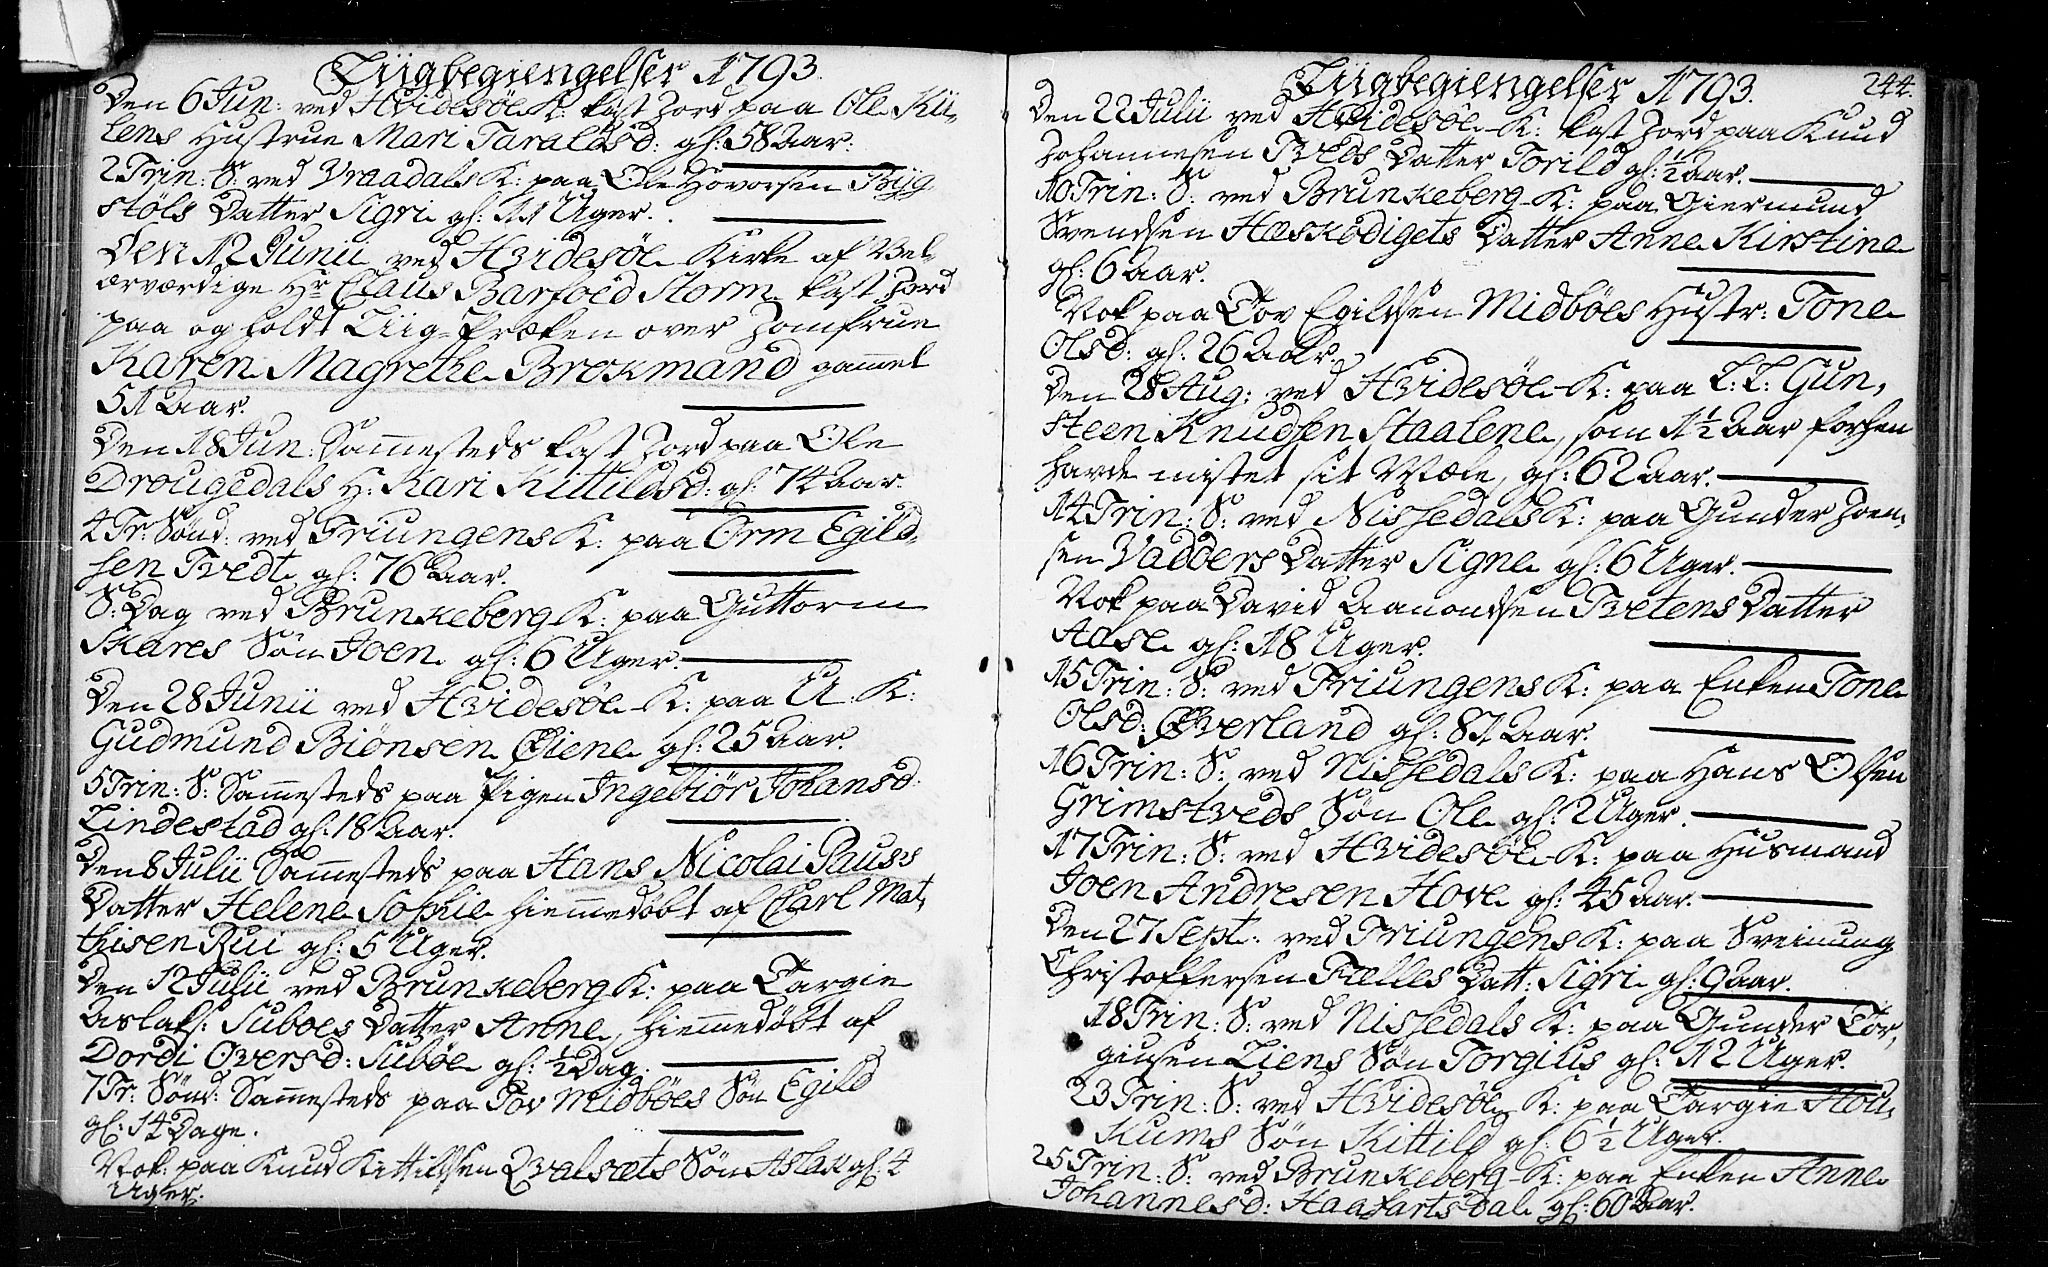 Liigbegiengelser 1793.
Den 6 Jun: ved Hvidesøe K: kast Jord paa Ole Ku-
lens Hustrue Mari Taraldsd: gl: 58 Aar.
2 Trin: S: ved Vraadals K: paa Ole Hovorsen Byg
støls Datter Sigri gl: 11 Uger.
Den 12 Junii ved Hvidesøe Kirke af Vel-
ærværdige Hr Claus Barfoed Storm kast Jord
paa og holdt Liig-Præken over Jomfrue
Karen Magrethe Brokmand gammel
51 Aar.
Den 18 Jun: Sammesteds kast Jord paa Ole
Drougedals H: Kari Kittildsd: gl: 74 Aar.
4 Tr: Sønd: ved Triungens K: paa Orm Egild-
sen Tvedt gl: 76 Aar.
S: Dag ved Brunkeberg K: paa Guttorm
Skares Søn Joen gl: 6 Uger.
Den 28 Junii ved Hvidesøe K: paa U: K:
Gudmund Biønsen Øiene gl: 25 Aar.
5 Trin: S: Sammesteds paa Pigen Ingebiør Johansd:
Lindestad gl: 18 Aar.
Den 8 Julii Sammesteds paa Hans Nicolai Pauss
Datter Helene Sophie hiemmedøbt af Carl Mat-
thisen Rui gl: 5 Uger.
Den 12 Julii ved Brunkeberg K: paa Targie
Aslaks: Suboes Datter Anne, hiemmedøbt af
Dordi Oversd: Subøe gl: ½ Dag.
7 Tr: Sønd: Sammesteds paa Tov Midbøes Søn Egild
gl: 14 Dage.
Nok: paa Knud Kittilsen Qvalsæts Søn Aslak gl: 4
Uger.
Liigbegiengelser 1793.
244.
Den 22 Julii ved Hvidesøe K: kast Jord paa Knud
Johannesen Tveds Datter Torild gl: ½ Aar.
10 Trin: S: ved Brunkeberg K: paa Giermund
Svendsen Hæskødigets Datter Anne Kirstine
gl: 6 Aar.
Nok paa Tov Egildsen Midbøes Hustr: Tone
Olsd: gl: 26 Aar.
Den 28 Aug: ved Hvidesøe K: paa L: L: Gun-
steen Knudsen Staalene, som 1½ Aar forhen
havde mistet sit Mæle, gl: 62 Aar.
14 Trin: S: ved Nissedals K: paa Gunder Joen-
sen Vadders Datter Signe gl: 6 Uger.
Nok paa David Aanondsen Tvetens Datter
Aase gl: 18 Uger.
15 Trin: S: ved Triungens K: paa Enken Tone
Olsd: Øverland gl: 81 Aar.
16 Trin: S: ved Nissedals K: paa Hans Olsen
Grimstveds Søn Ole gl: 2 Uger.
17 Trin: S: ved Hvidesøe K: paa Husmand
Joen Andresen Hove gl: 45 Aar.
Den 27 Sept: ved Triungens K: paa Sveinung
Christoffersen Fælles Datt: Sigri gl: 9 Aar.
18 Trin: S: ved Nissedals K: paa Gunder Tor-
giusen Liens Søn Torgius gl: 12 Uger.
23 Trin: S: ved Hvidesøe K: paa Targie Hou-
Kums Søn Kittild gl: 6½ Uger.
25 Trin: S: ved Brunkeberg K: paa Enken Anne
Johannesd: Haafartsdal gl: 60 Aar.